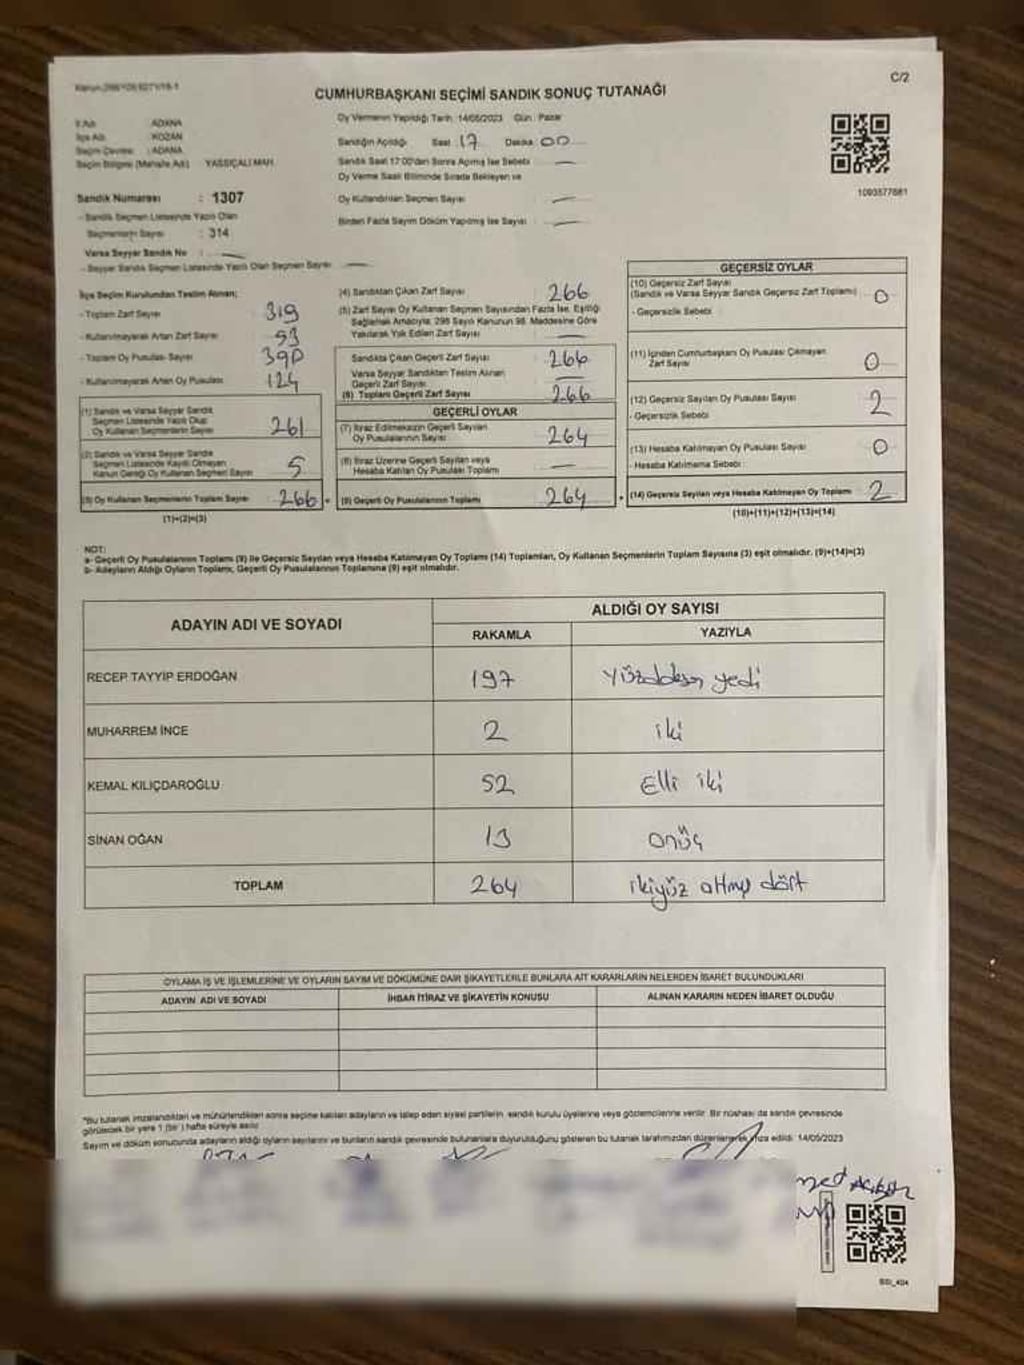 C/2
CUMHURBAŞKANI SEÇİMİ SANDIK SONUÇ TUTANAĞI
İl Adı : ADANA
İlçe Adı : KOZAN
Seçim Çevresi : ADANA
Seçim Bölgesi (Mahalle Adı) YASSIÇALI MAH.
Sandık Numarası : 1307
- Sandık Seçmen Listesinde Yazılı Olan
Seçmenlerin Sayısı : 314
Varsa Seyyar Sandık No : —
- Seyyar Sandık Seçmen Listesinde Yazılı Olan Seçmen Sayısı —
Oy Vermenin Yapıldığı Tarih: 14/05/2023 Gün: Pazar
Sandığın Açıldığı Saat : 17 Dakika : 00
Sandık Saat 17:00'den Sonra Açılmış İse Sebebi —
Oy Verme Saati Bitiminde Sırada Bekleyen ve
Oy Kullandırılan Seçmen Sayısı —
Birden Fazla Sayım Döküm Yapılmış İse Sayısı —
1093577681
İlçe Seçim Kurulundan Teslim Alınan;
- Toplam Zarf Sayısı 319
- Kullanılmayarak Artan Zarf Sayısı 53
- Toplam Oy Pusulası Sayısı 390
- Kullanılmayarak Artan Oy Pusulası 124
(1) Sandık ve Varsa Seyyar Sandık
Seçmen Listesinde Yazılı Olup
Oy Kullanan Seçmenlerin Sayısı 261
(2) Sandık ve Varsa Seyyar Sandık
Seçmen Listesinde Kayıtlı Olmayan
Kanun Gereği Oy Kullanan Seçmen Sayısı 5
(3) Oy Kullanan Seçmenlerin Toplam Sayısı 266
(1)+(2)=(3)
(4) Sandıktan Çıkan Zarf Sayısı 266
(5) Zarf Sayısı Oy Kullanan Seçmen Sayısından Fazla İse, Eşitliği
Sağlamak Amacıyla; 298 Sayılı Kanunun 98. Maddesine Göre
Yakılarak Yok Edilen Zarf Sayısı —
Sandıkta Çıkan Geçerli Zarf Sayısı 266
Varsa Seyyar Sandıktan Teslim Alınan
Geçerli Zarf Sayısı —
(6) Toplam Geçerli Zarf Sayısı 266
GEÇERLİ OYLAR
(7) İtiraz Edilmeksizin Geçerli Sayılan
Oy Pusulalarının Sayısı 264
(8) İtiraz Üzerine Geçerli Sayılan veya
Hesaba Katılan Oy Pusulası Toplamı —
(9) Geçerli Oy Pusulalarının Toplamı 264
GEÇERSİZ OYLAR
(10) Geçersiz Zarf Sayısı
(Sandık ve Varsa Seyyar Sandık Geçersiz Zarf Toplamı) 0
- Geçersizlik Sebebi:
(11) İçinden Cumhurbaşkanı Oy Pusulası Çıkmayan
Zarf Sayısı 0
(12) Geçersiz Sayılan Oy Pusulası Sayısı 2
- Geçersizlik Sebebi:
(13) Hesaba Katılmayan Oy Pusulası Sayısı 0
- Hesaba Katılmama Sebebi :
(14) Geçersiz Sayılan veya Hesaba Katılmayan Oy Toplamı 2
(10)+(11)+(12)+(13)=(14)
NOT:
a- Geçerli Oy Pusulalarının Toplamı (9) ile Geçersiz Sayılan veya Hesaba Katılmayan Oy Toplamı (14) Toplamları, Oy Kullanan Seçmenlerin Toplam Sayısına (3) eşit olmalıdır. (9)+(14)=(3)
b- Adayların Aldığı Oyların Toplamı, Geçerli Oy Pusulalarının Toplamına (9) eşit olmalıdır.
ADAYIN ADI VE SOYADI
ALDIĞI OY SAYISI
RAKAMLA YAZIYLA
RECEP TAYYİP ERDOĞAN 197 Yüzdoksan yedi
MUHARREM İNCE 2 iki
KEMAL KILIÇDAROĞLU 52 Elli iki
SİNAN OĞAN 13 onüç
TOPLAM 264 ikiyüz altmış dört
OYLAMA İŞ VE İŞLEMLERİNE VE OYLARIN SAYIM VE DÖKÜMÜNE DAİR ŞİKAYETLERLE BUNLARA AİT KARARLARIN NELERDEN İBARET BULUNDUKLARI
ADAYIN ADI VE SOYADI İHBAR İTİRAZ VE ŞİKAYETİN KONUSU ALINAN KARARIN NEDEN İBARET OLDUĞU
*Bu tutanak imzalandıktan ve mühürlendikten sonra seçime katılan adayların ve talep eden siyasi partilerin, sandık kurulu üyelerine veya gözlemcilerine verilir. Bir nüshası da sandık çevresinde
görülecek bir yere 1 (bir) hafta süreyle asılır.
Sayım ve döküm sonucunda adayların aldığı oyların sayılarını ve bunların sandık çevresinde bulunanlara duyurulduğunu gösteren bu tutanak tarafımızdan düzenlenerek imza edildi. 14/05/2023